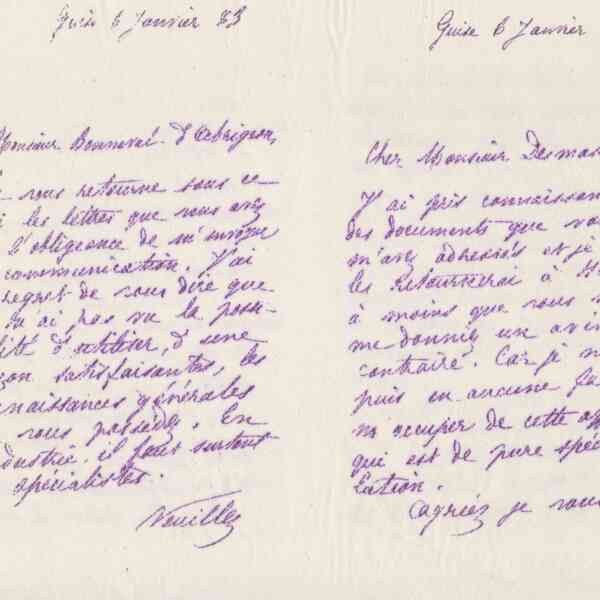 Guise 6 Janvier 83
Monsieur Bonneval d'
vous retourne sous ce
les lettres que vous avez
l'obligeance de m'envoyer
communication. J'ai
regret de vous dire que
n'ai pas vu la possi-
lité d'utiliser, d'une
çon satisfaisante, les
naissances générales
vous possedez. En
dustrie il faut surtout
spécialistes.
Veuillez
Guise 6 Janvier
Cher Monsieur Desmas
J'ai pris connaissan
des documents que vo
m'avez adressés et je
les retournerai à
à moins que vous n
me donniez un avi
contraire. Car je n
puis en aucune fa
m'occuper de cette aff
qui est de pure spéc
lation.
Agréez je vous